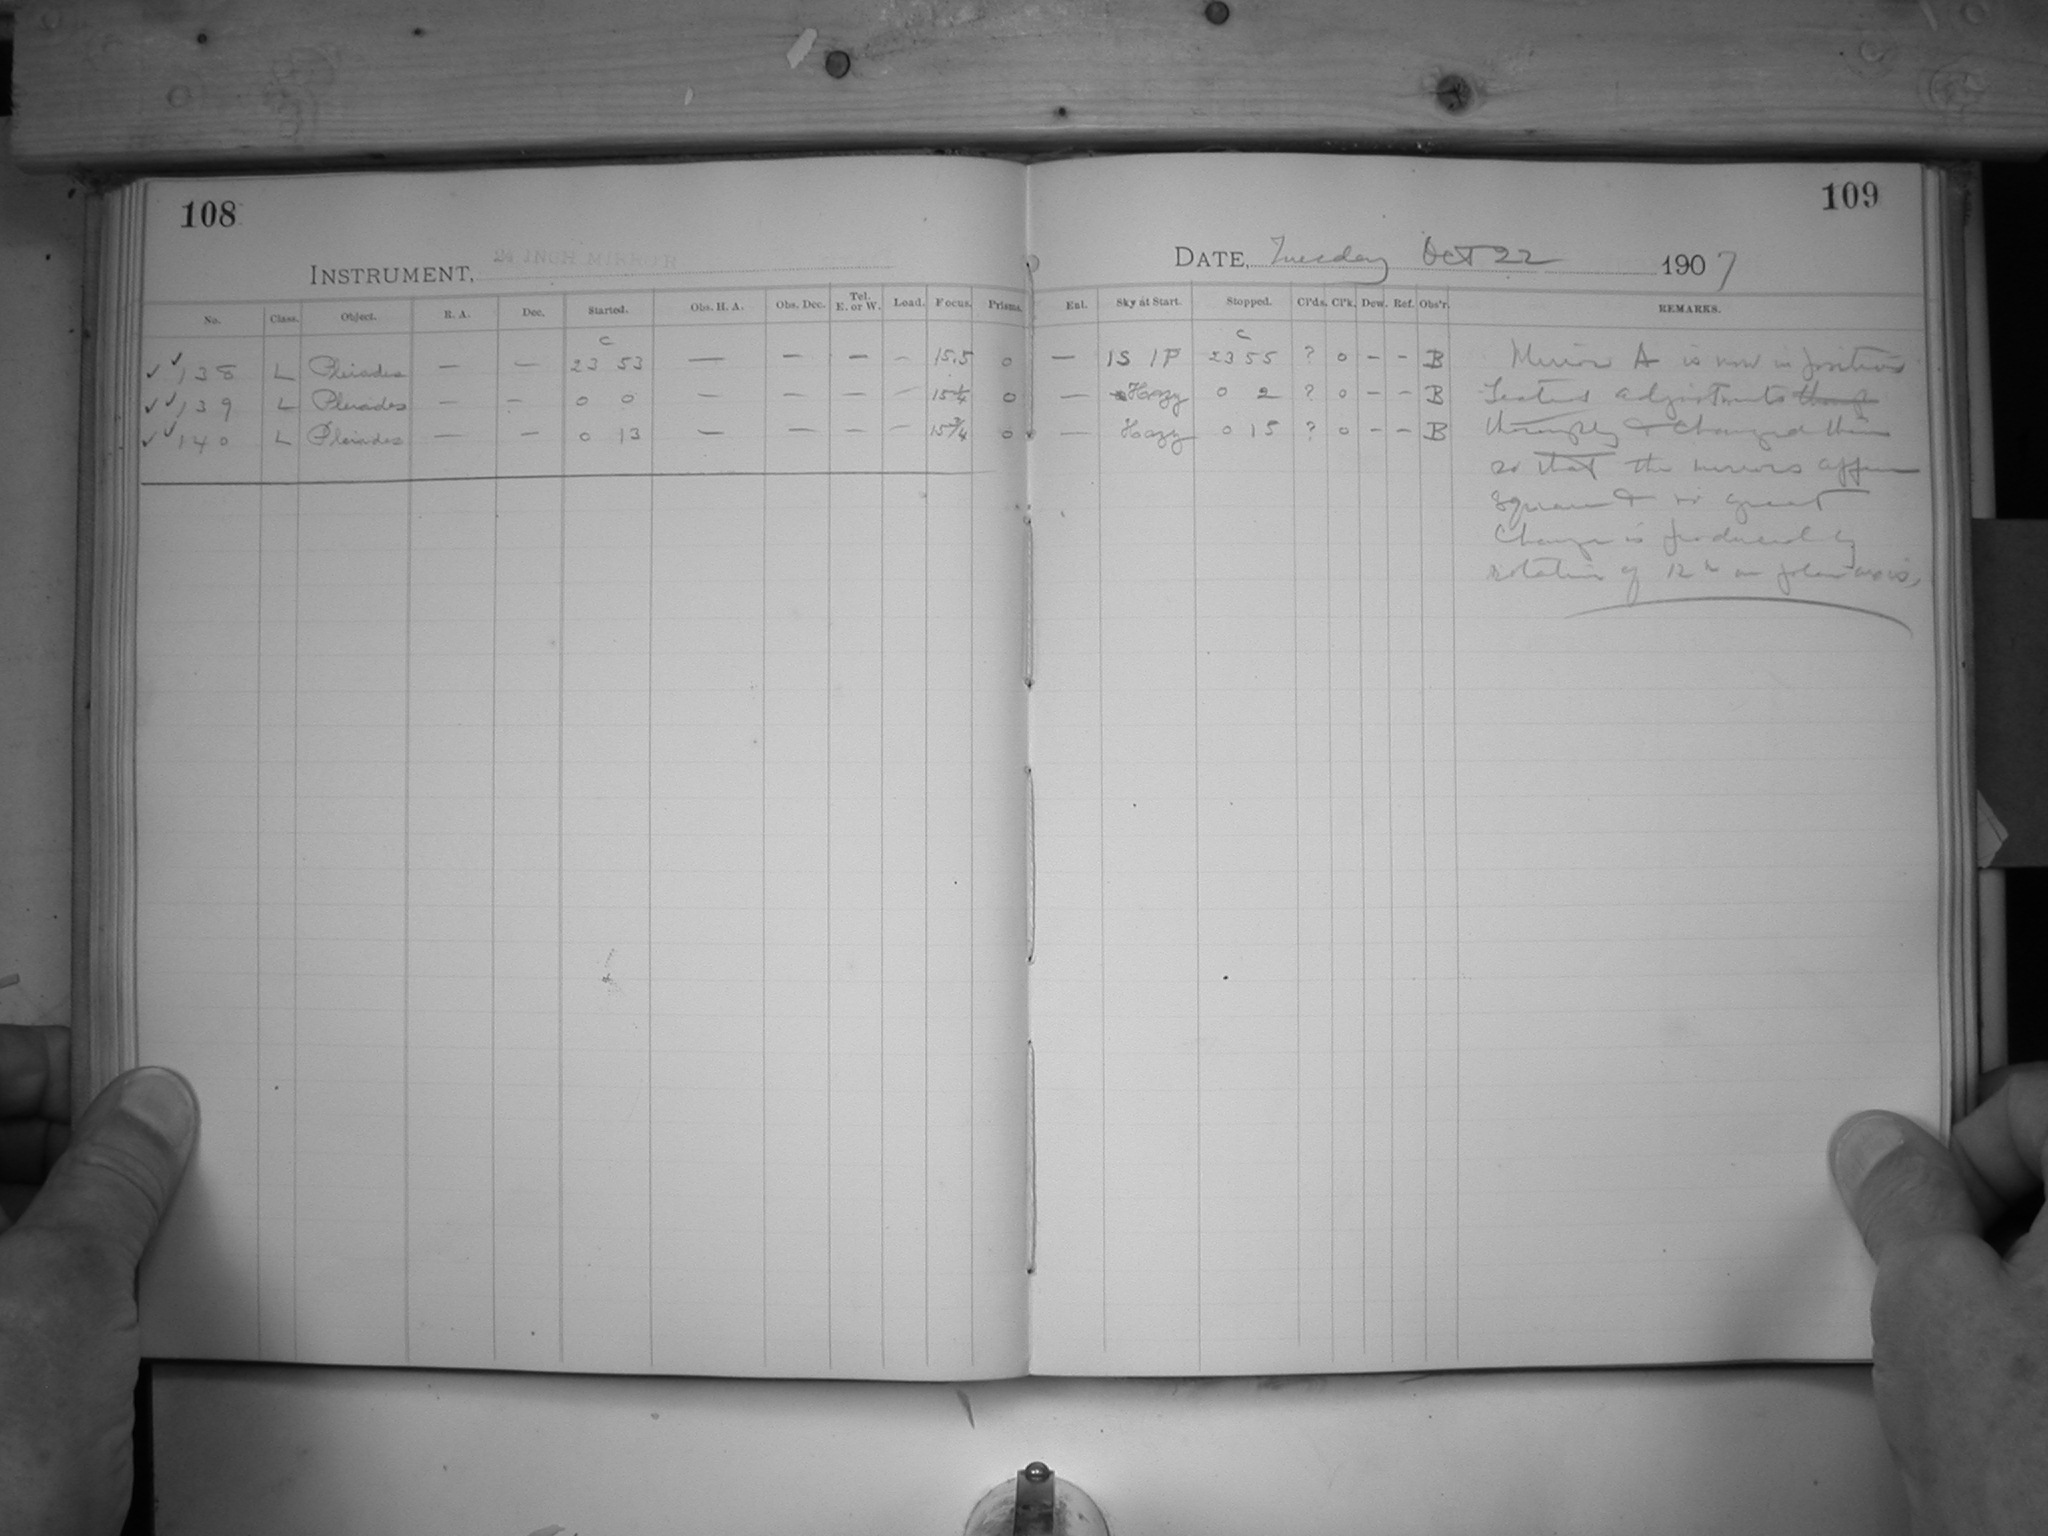 108
109
INSTRUMENT, 24 INCH MIRROR
DATE, Tuesday Oct 22 1907
No. Class. Object. R. A. Dec. Started. Obs. H. A. Obs. Dec. Tel. E. or W. Load. Focus. Prisms. Enl. Sky at Start. Stopped. Cl'ds. Cl'k. Dew. Ref. Obs'r. REMARKS.
c c
✓ ✓ 138 L Pleiades — — 23 53 — — — — 15.5 0 — 1S 1P 23 55 ? 0 – – B
✓ ✓ 139 L Pleiades — — 0 0 — — — — 15¼ 0 — Hazy 0 2 ? 0 – – B
✓ ✓ 140 L Pleiades — — 0 13 — — — 15¾ 0 — Hazy 0 15 ? 0 – – B
Mirror A is now in position
Tested adjustments
& changed them
so that the mirrors appear
square & no great
change is produced by
rotation of 12h on polar axis.